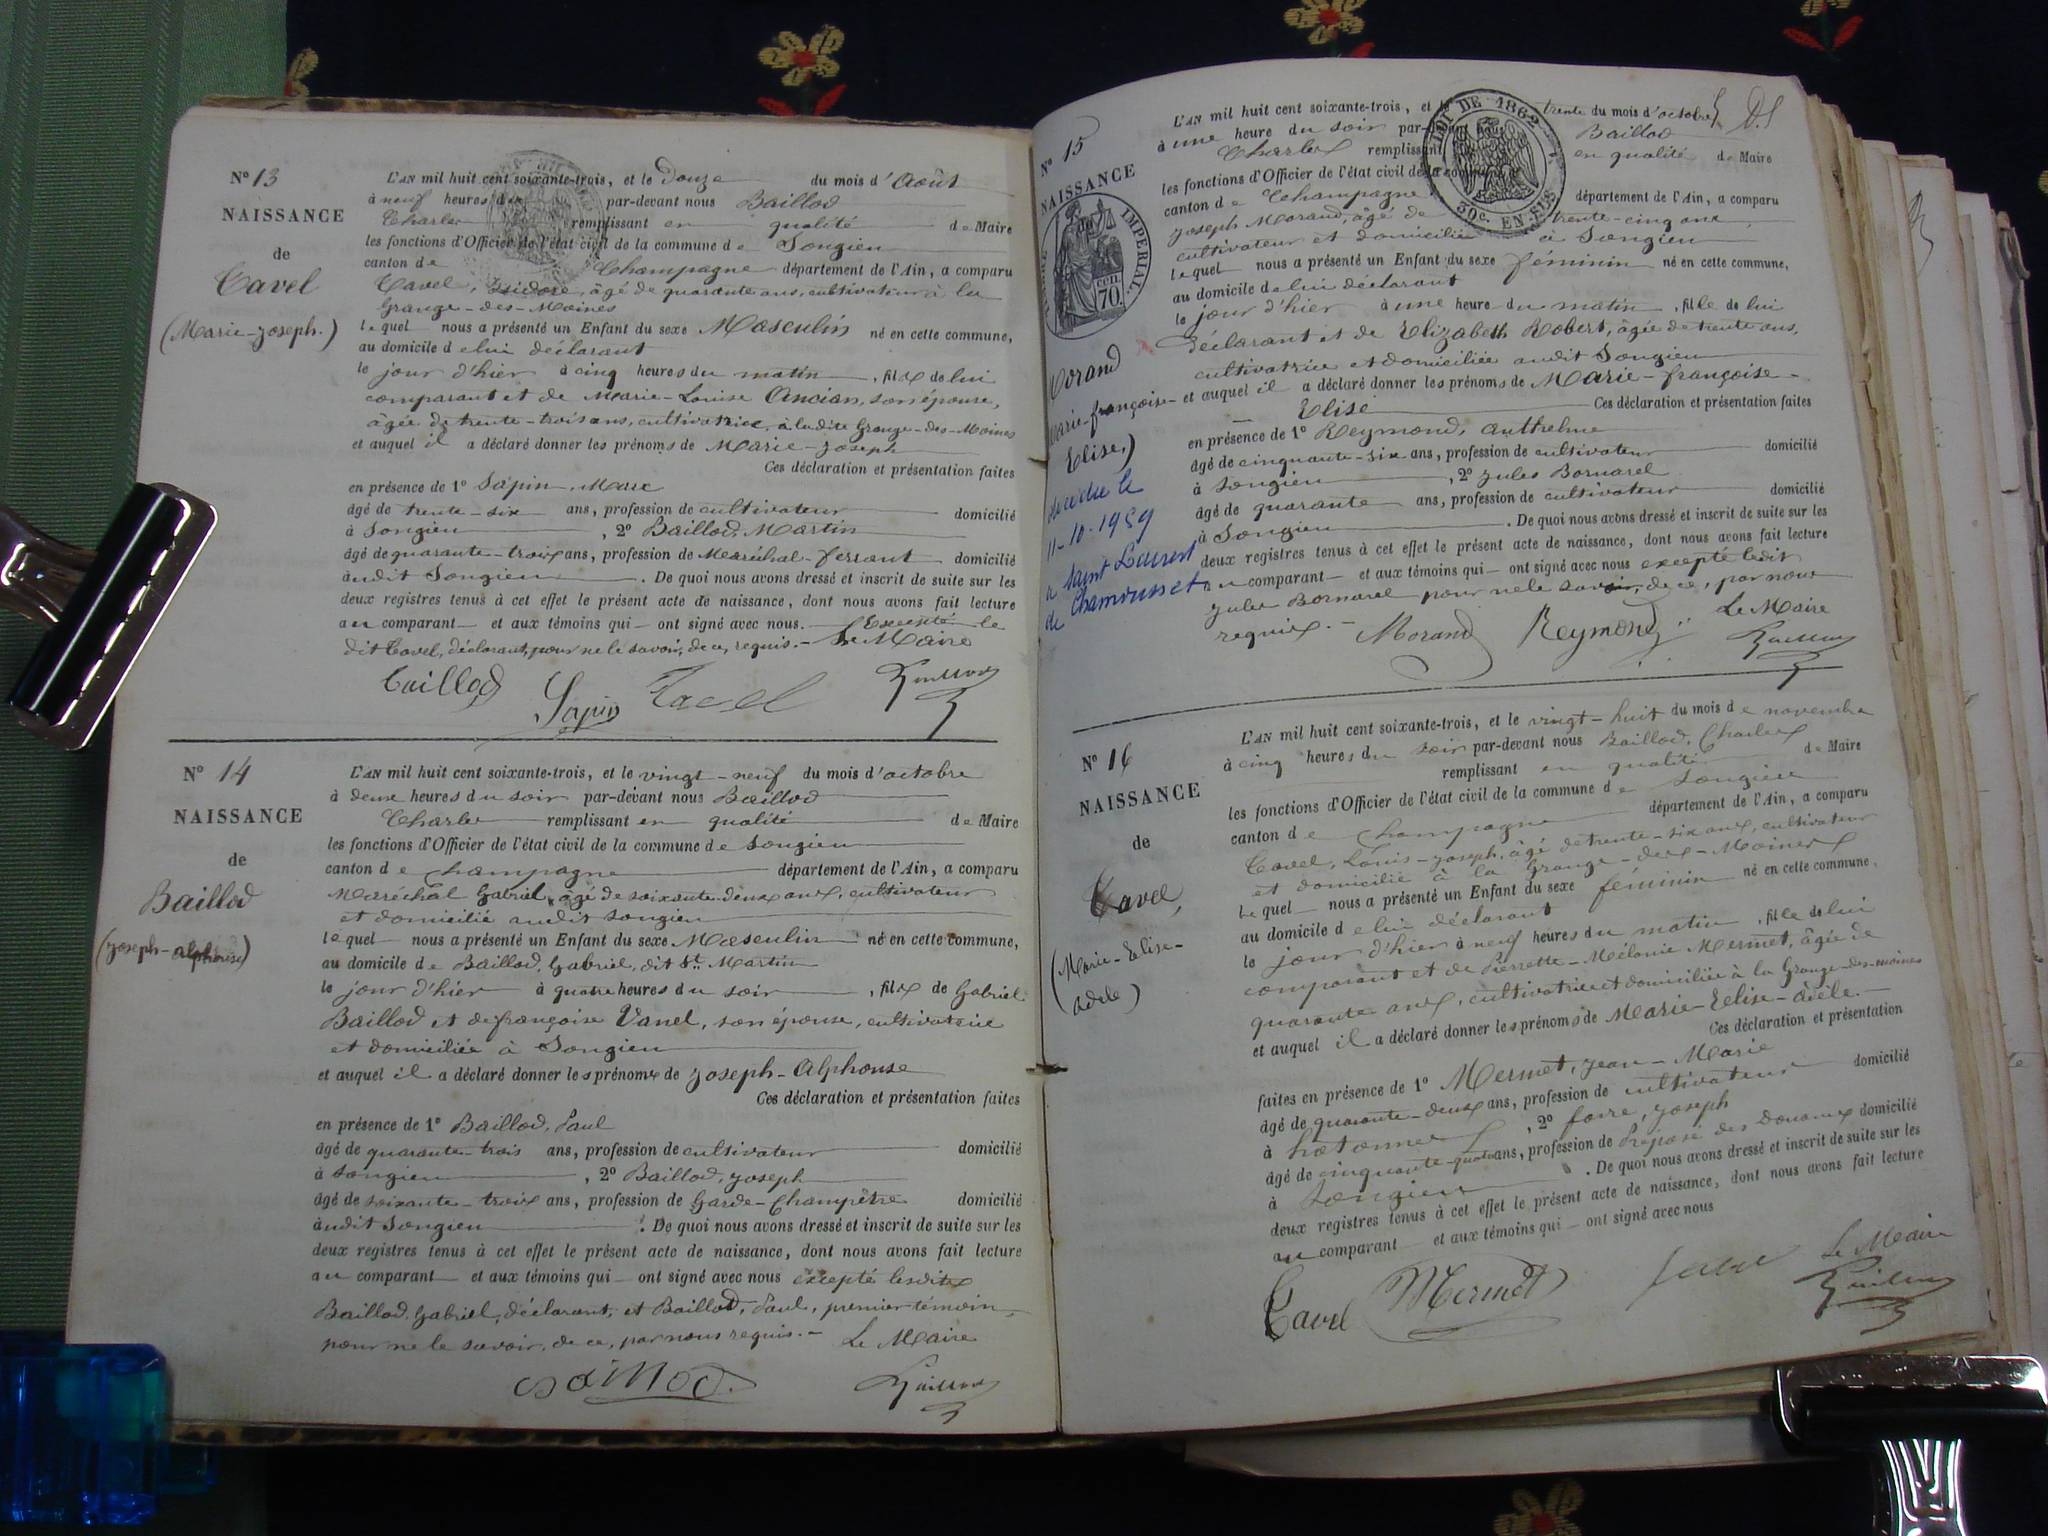 N° 13
NAISSANCE
de
Cavel
(Marie-Joseph.)
L'AN mil huit cent soixante-trois, et le Douze du mois d'Août
à neuf heures du par-devant nous Baillod
Charles remplissant en qualité de Maire
les fonctions d'Officier de l'état civil de la commune de Songieu
canton de Champagne département de l'Ain, a comparu
Cavel, Isidore, âgé de quarante ans, cultivateur à la
Grange-des-Moines
lequel nous a présenté un Enfant du sexe Masculin né en cette commune,
au domicile de lui déclarant
le jour d'hier à cinq heures du matin, fils de lui
comparant et de Marie-Louise Ancian, son épouse,
âgée de trente-trois ans, cultivatrice, à ladite Grange-des-Moines
et auquel il a déclaré donner les prénoms de Marie-Joseph
Ces déclaration et présentation faites
en présence de 1° Sapin, Marc
âgé de trente-six ans, profession de cultivateur domicilié
à Songieu, 2° Baillod, Martin
âgé de quarante-trois ans, profession de Maréchal-ferrant domicilié
audit Songieu. De quoi nous avons dressé et inscrit de suite sur les
deux registres tenus à cet effet le présent acte de naissance, dont nous avons fait lecture
au comparant et aux témoins qui ont signé avec nous. Excepté le
dit Cavel, déclarant, pour ne le savoir, de ce, requis.- Le Maire
Baillod Sapin Cavel Baillod
N° 14
NAISSANCE
de
Baillod
(Joseph-Alphonse)
L'AN mil huit cent soixante-trois, et le vingt-neuf du mois d'octobre
à deux heures du soir par-devant nous Baillod
Charles remplissant en qualité de Maire
les fonctions d'Officier de l'état civil de la commune de Songieu
canton de Champagne département de l'Ain, a comparu
Maréchal Gabriel, âgé de soixante-deux ans, cultivateur
et domicilié audit Songieu
lequel nous a présenté un Enfant du sexe Masculin né en cette commune,
au domicile de Baillod, Gabriel, dit St. Martin
le jour d'hier à quatre heures du soir, fils de Gabriel
Baillod et de françoise Vanel, son épouse, cultivatrice
et domiciliée à Songieu
et auquel il a déclaré donner les prénoms de Joseph-Alphonse
Ces déclaration et présentation faites
en présence de 1° Baillod, Paul
âgé de quarante-trois ans, profession de cultivateur domicilié
à Songieu, 2° Baillod, Joseph
âgé de soixante-trois ans, profession de Garde-Champêtre domicilié
audit Songieu. De quoi nous avons dressé et inscrit de suite sur les
deux registres tenus à cet effet le présent acte de naissance, dont nous avons fait lecture
au comparant et aux témoins qui ont signé avec nous excepté lesdits
Baillod, Gabriel, déclarant, et Baillod, Paul, premier témoin,
pour ne le savoir, de ce, par nous requis.- Le Maire
Baillod. Baillod
N° 15
NAISSANCE
TIMBRE IMPERIAL.
CCIL
70.
Morand
Marie-françoise-
Elise,)
décédée le
11-10-1959
a Saint Laurent
de Chamousset
LOI DE 1862
30c. EN SUS
L'AN mil huit cent soixante-trois, et le trente du mois d'octobre
à une heure du soir par-devant nous Baillod
Charles remplissant en qualité de Maire
les fonctions d'Officier de l'état civil de la commune
canton de Champagne département de l'Ain, a comparu
Joseph Morand, âgé de trente-cinq ans,
cultivateur et domicilié à Songieu
lequel nous a présenté un Enfant du sexe féminin né en cette commune,
au domicile de lui déclarant
le jour d'hier à une heure du matin, fille de lui
déclarant et de Elizabeth Robert, âgée de trente ans,
cultivatrice et domiciliée audit Songieu
et auquel il a déclaré donner les prénoms de Marie-françoise-
Elise Ces déclaration et présentation faites
en présence de 1° Reymond, Anthelme
âgé de cinquante-six ans, profession de cultivateur domicilié
à Songieu, 2° Jules Bornarel
âgé de quarante ans, profession de cultivateur domicilié
à Songieu. De quoi nous avons dressé et inscrit de suite sur les
deux registres tenus à cet effet le présent acte de naissance, dont nous avons fait lecture
au comparant et aux témoins qui ont signé avec nous excepté ledit
Jules Bornarel pour ne le savoir, de ce, par nous
requis.- Le Maire
Morand Reymond Baillod
N° 16
NAISSANCE
de
Cavel,
(Marie-Elise-
Adèle)
L'AN mil huit cent soixante-trois, et le vingt-huit du mois de novembre
à cinq heures du soir par-devant nous Baillod, Charles
remplissant en qualité de Maire
les fonctions d'Officier de l'état civil de la commune de Songieu
canton de Champagne département de l'Ain, a comparu
Cavel, Louis-Joseph, âgé de trente-six ans, cultivateur
et domicilié à la Grange-des-Moines
lequel nous a présenté un Enfant du sexe féminin né en cette commune,
au domicile de lui déclarant
le jour d'hier à neuf heures du matin, fille de lui
comparant et de Pierrette-Mélanie Mermet, âgée de
quarante ans, cultivatrice et domiciliée à la Grange-des-moines
et auquel il a déclaré donner les prénoms de Marie-Elise-Adèle.-
Ces déclaration et présentation
faites en présence de 1° Mermet, Jean-Marie
âgé de quarante-deux ans, profession de cultivateur domicilié
à hotonnes, 2° favre, Joseph
âgé de cinquante-quatre ans, profession de Préposé des Douanes domicilié
à Songieu. De quoi nous avons dressé et inscrit de suite sur les
deux registres tenus à cet effet le présent acte de naissance, dont nous avons fait lecture
au comparant et aux témoins qui ont signé avec nous
Le Maire
Cavel Mermet favre Baillod